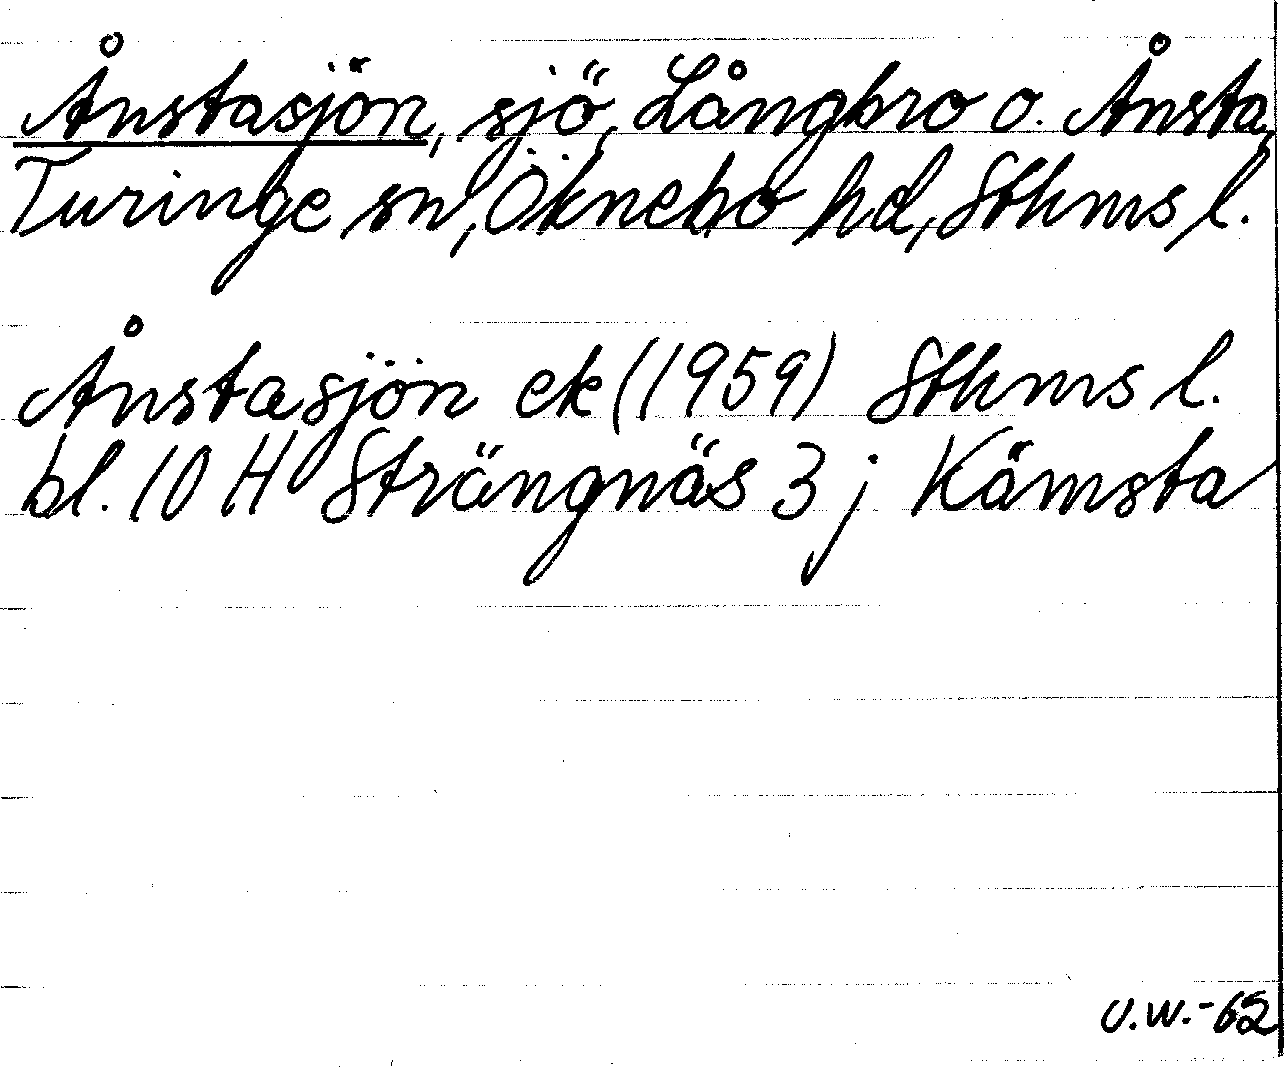 Ånstasjön, sjö, Långbro o. Ånsta,
Turinge sn, Öknebo hd, Sthms l.
Ånstasjön ek (1959) Sthms l.
bl. 10 H Strängnäs 3 j Kämsta
U.W.-62